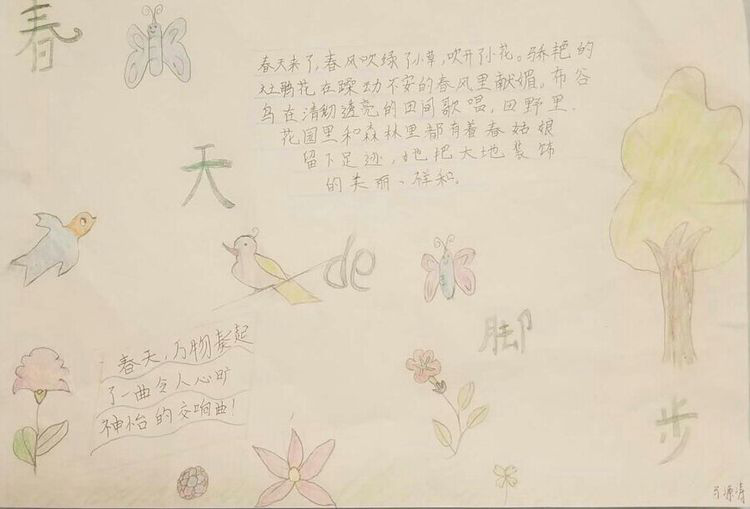 春天de脚步
春天来了,春风吹绿了小草,吹开了小花。骄艳的
杜鹃花在躁动不安的春风里献媚。布谷
鸟在清彻透亮的田间歌唱,田野里、
花园里和森林里都有着春姑娘
留下足迹,她把大地装饰
的美丽、祥和。
春天,万物奏起
了一曲令人心旷
神怡的交响曲!